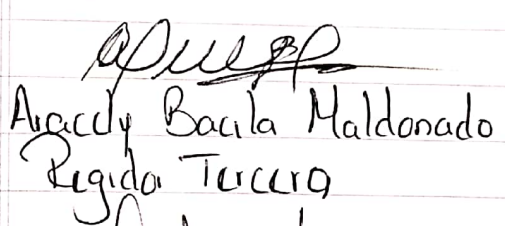 Aracely Bacila Maldonado
Regidor Tercera